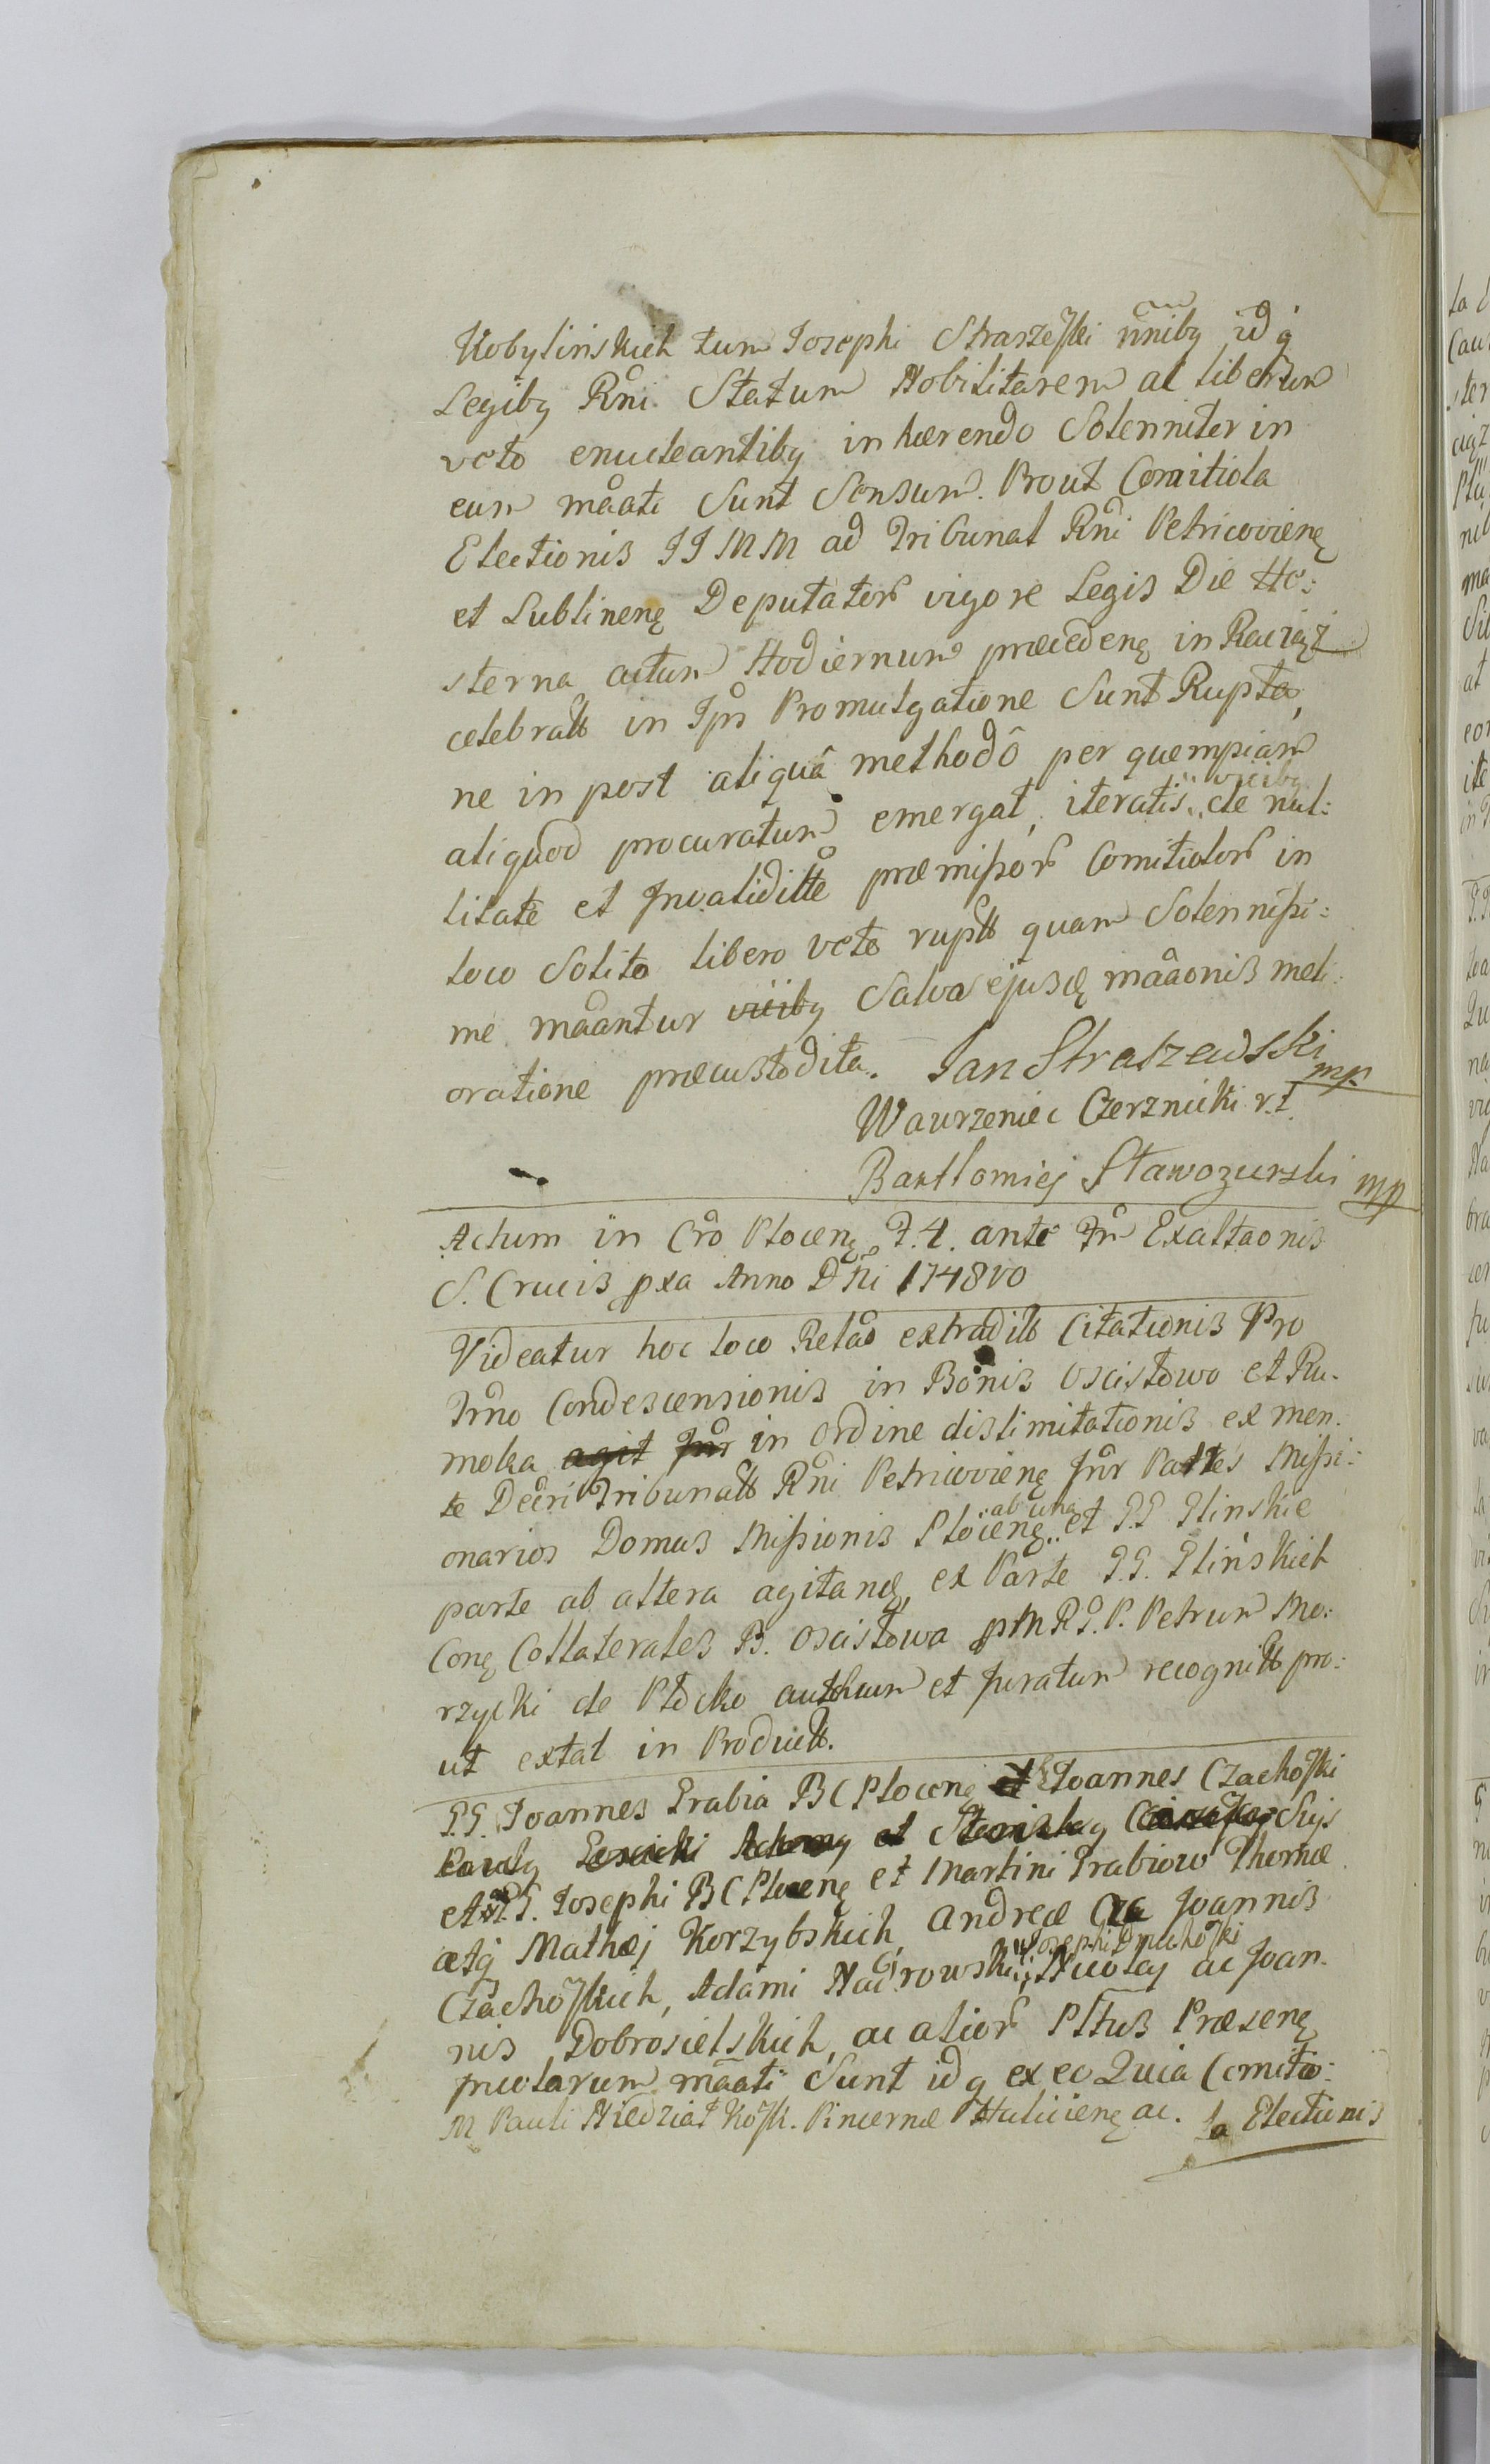 Kobylinskich tum Josephi Straszeſki nnibꝫ id ꝗ
Legibꝫ Rni Statum Nobilitarem al liberum
veto enucleantibꝫ inhærendo Solenniter in
eum mãati Sunt Sensum. Prout Comitiola
Electionis JJ MM ad Tribunal Rni Petricovienꝫ
et Lublinenꝫ Deputator vigore Legis Die He:
sterna actum Hodiernum præcedenꝫ in Raciąż
celebratt in Ipsº Promulgatione Sunt Rupta,
ne in post aliquâ methodô per quempiam
aliquod procuratum emergat, iteratis vicibꝫ de nul:
litate et Invaliditte præmißor Comitiolor in
loco Solito libero veto ruptt quam Solennißi:
me mãantur vicibꝫ Salva ejusdꝫ mãaonis meli:
oratione præcustodita. Jan Straszewski mp
Wawrzeniec Czerznicki r.t.
Bartłomiej Sławozurski mp
Actum in Cro Plocenꝫ F. 4. ante Fm Exaltaonis
S. Crucis pxa Anno Dni 1748vo
Videatur hoc loco Relao extradit Citationis Pro
Trno Condescensionis in Bonis Oscisłowo et Ru-
moka agit Inr in Ordine dislimitationis ex men-
te Decri Tribunatt Rni Petricovienꝫ Inr Partes Mißi:
onarios Domus Mißionis Plocenꝫ ab una et G.G. Glinskie
parte ab altera agitandꝫ, ex Parte G.G. Glińskich
Conꝫ Collaterales B. Oscisłowa p M R G. P. Petrum Mo:
rzycki de Plocko authum et Juratum recognitt pro:
ut extat in Productt.
G.G. Joannes Grabia B C Plocenꝫ et Joannes Czachoſki
et G.G. Josephi B C Plocenꝫ et Martini Grabiow Thomæ
ætꝗ Mathæj Korzybskich, Andreæ Joannis
Czachoſkich, Adami Nadrowski, Josephi Dpuchoſki Nicolaj ac Joan-
nis Dobrosielskich, ac alior Plttus Præsenꝫ
Incolarum mãati Sunt id ꝗ ex eo Quia Comitio:
M Pauli Niedziałkoſk. Pincernæ Halicienꝫ ac. la Electionis